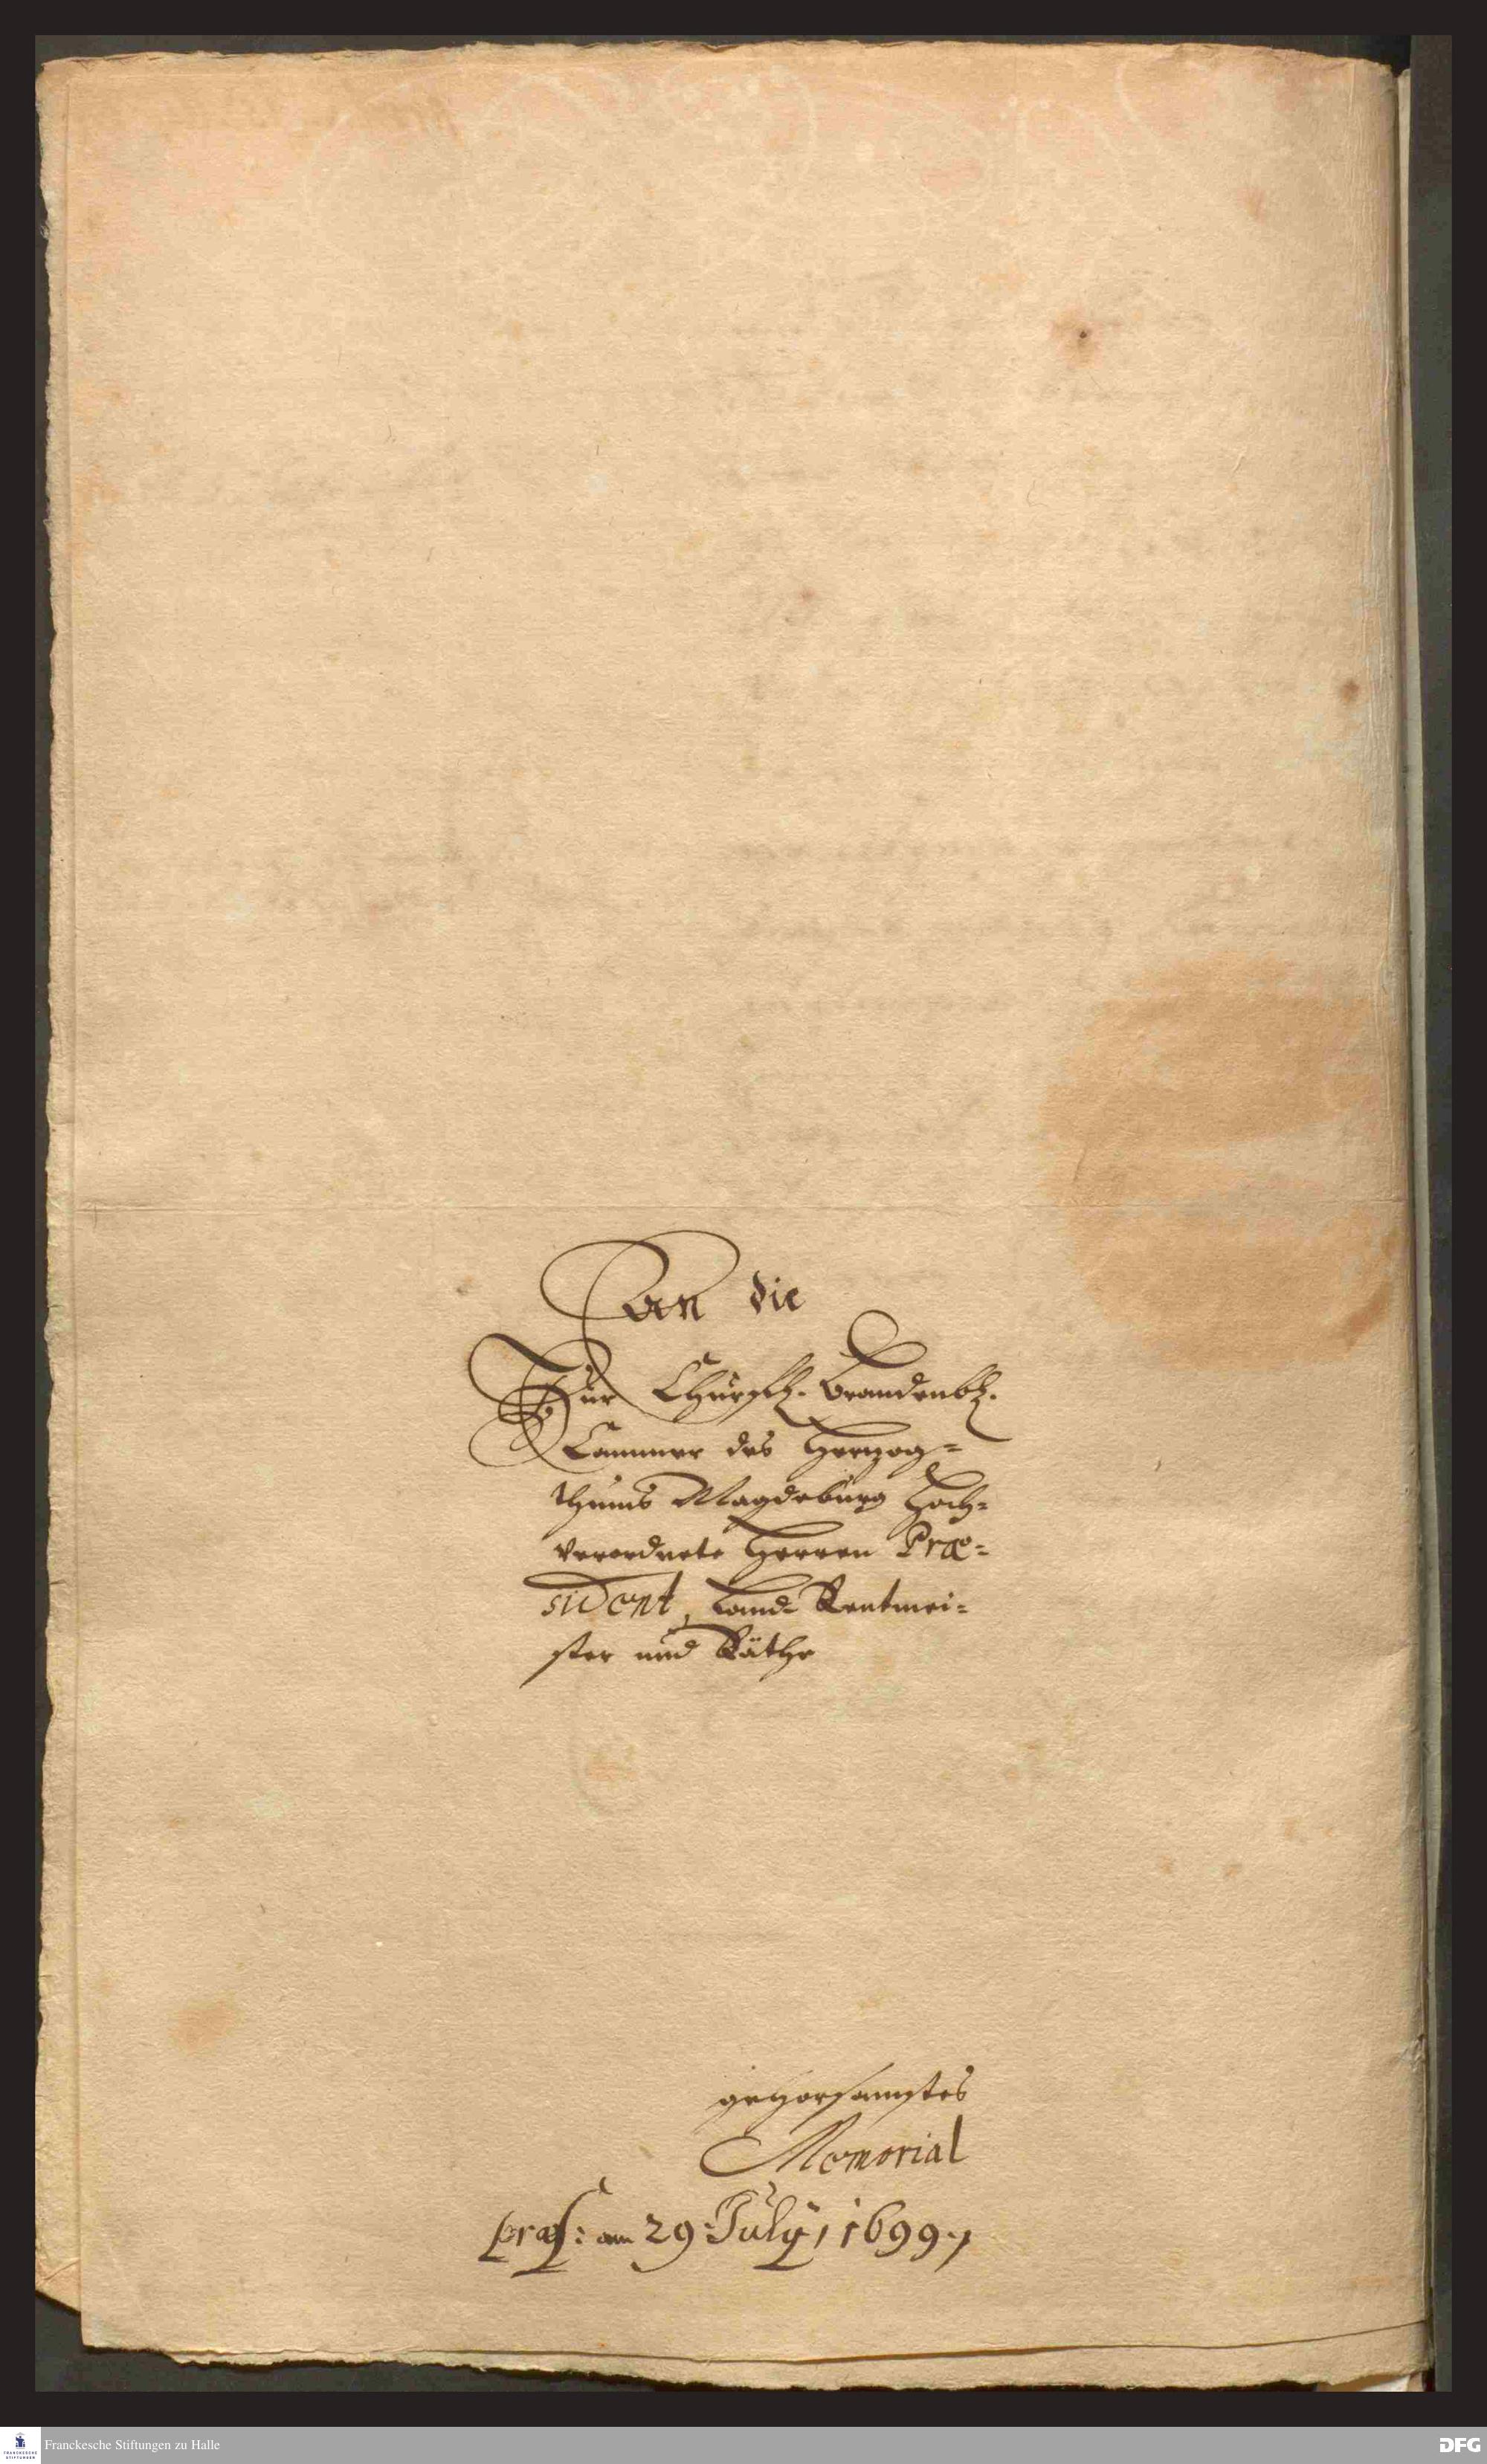 An die
Zur Churfl. Brandenbl.
Cammer des Hertzog=
thums Magdeburg Hoch=
verordnete Herren Præ=
sident, Land-Rentmei=
ster und Räthe
gehorsamstes
Memorial
præs: am 29. July, 1699.
Franckesche Stiftungen zu Halle
DFG